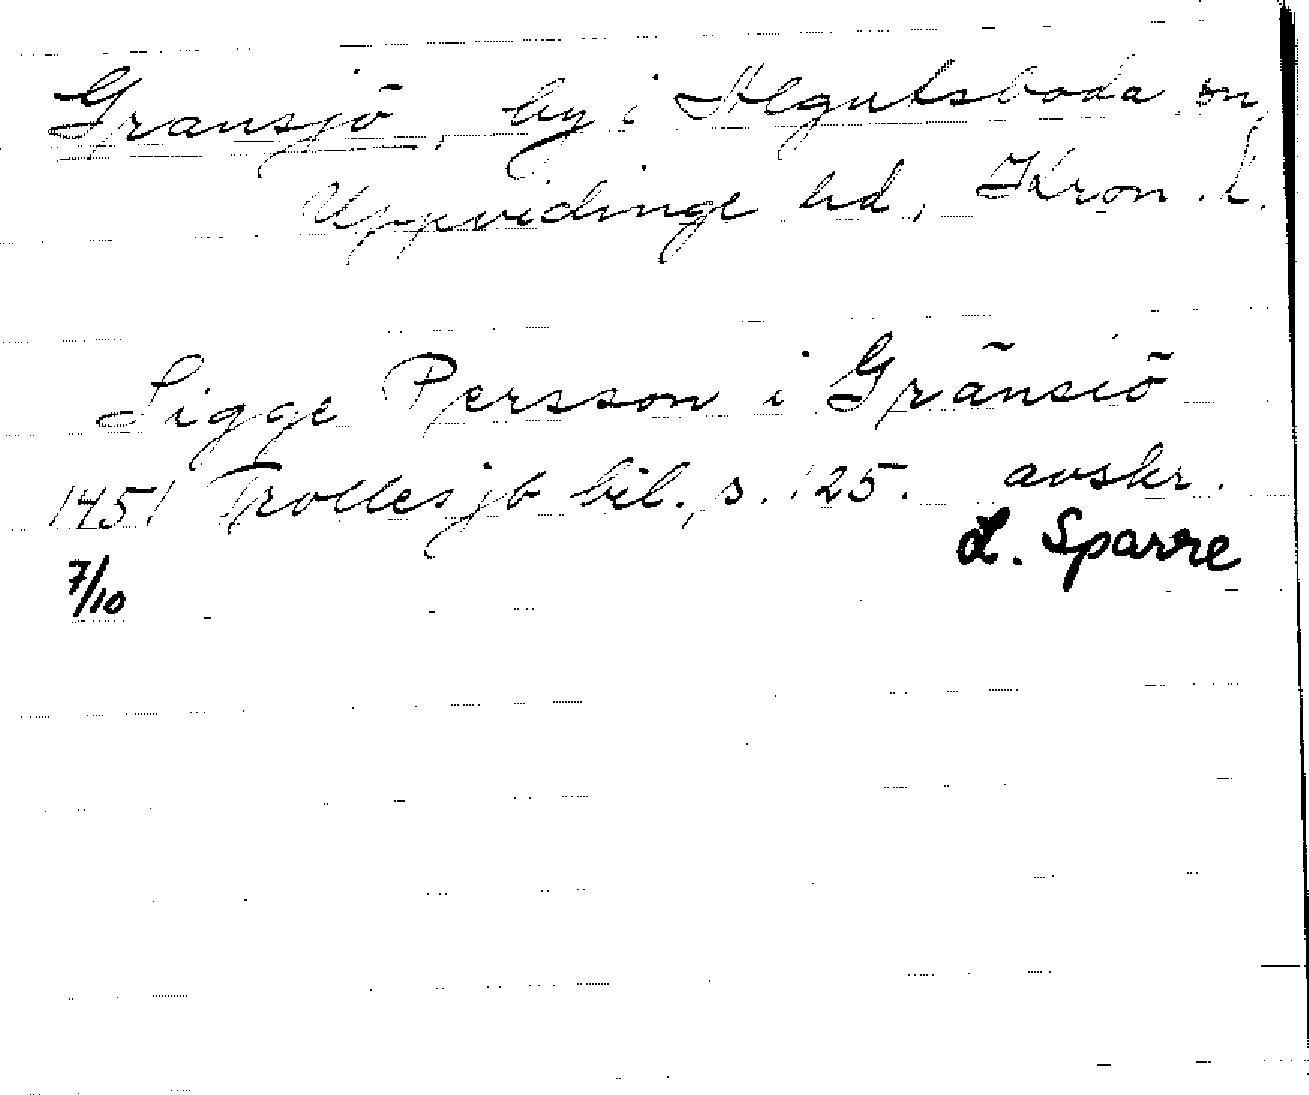 Gransjö, by i Algutsboda sn,
Uppvidinge hd, Kron. l.
Sigge Persson i Gränsiö
1451 Trollesjb bil., s. 125. avskr.
7/10 L. Sparre